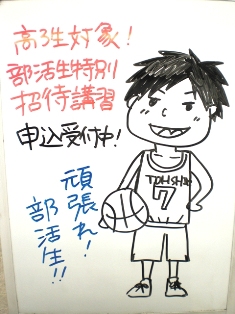 高3生対象!
部活生特別
招待講習
申込受付中!
頑張れ!
部活生!!
TOHSHIN
7